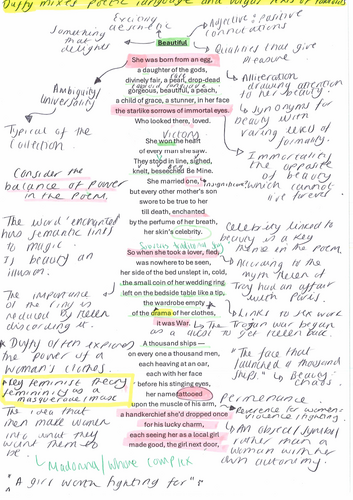 Duffy mixes poetic language and vulgar
Exciting
aesthetic
Something
that
delights
Adjective: positive
connotations
Beautiful
Qualities that give
pleasure.
She was born from an egg,
a daughter of the gods,
divinely fair, a pearl, drop-dead
gorgeous, beautiful, a peach,
a child of grace, a stunner, in her face
the starlike sorrows of immortal eyes.
Who looked there, loved.
Alliteration
drawing attention
to her beauty.
Ambiguity/
Universality
Synonyms for
beauty with
varying levels of
formality.
Typical of the
collection.
Immortality
the opposite
of beauty
which cannot
live forever.
Victory
She won the heart
of every man she saw.
They stood in line, sighed,
knelt, beseeched Be Mine.
She married one,
but every other mother's son
swore to be true to her
till death, enchanted
by the perfume of her breath,
her skin's celebrity.
Consider the
balance of power
in the poem.
The word 'enchanted'
has semantic links
to magic.
Is beauty an
illusion.
Celebrity linked to
beauty is a key
theme in the poem.
So when she took a lover, fled,
was nowhere to be seen,
her side of the bed unslept in, cold,
the small coin of her wedding ring
left on the bedside table like a tip,
the wardrobe empty
of the drama of her clothes,
it was War.
According to the
myth Helen of
Troy had an affair
with Paris.
The importance
of the ring is
reduced by Helen
discarding it.
Links to her work
The Trojan war began
as a
to get Helen back.
Duffy often explores
the power of a
woman's clothes.
A thousand ships —
on every one a thousand men,
each heaving at an oar,
each with her face
before his stinging eyes,
her name tattooed
upon the muscle of his arm,
a handkerchief she'd dropped once
for his lucky charm,
each seeing her as a local girl
made good, the girl next door,
"The face that
launched a thousand
ships." Beauty
chaos.
Key feminist theory
femininity as a
masquerade
The idea that
then made women
into what they
want them to
be.
Permenence
Reverence for women
violence fighting.
An object/symbol
rather than a
woman with her
own autonomy.
Madonna/whore complex
"A girl worth fighting for"